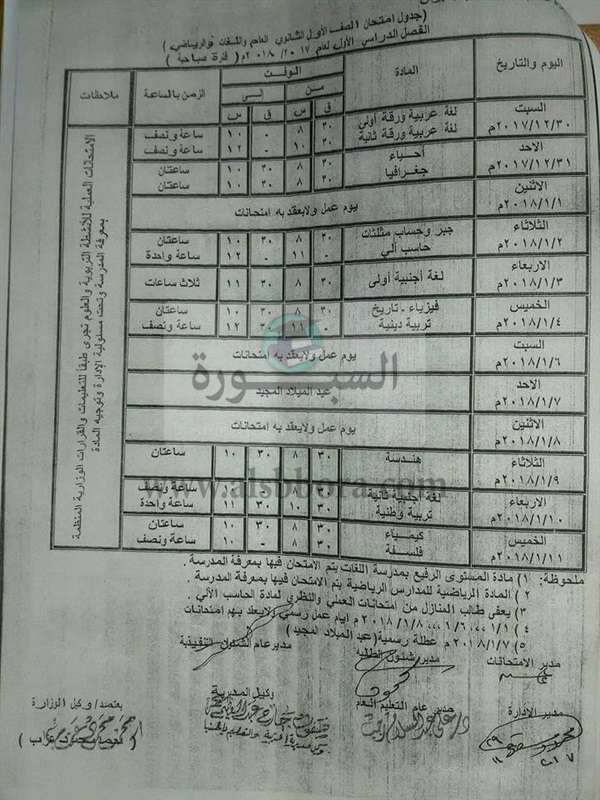 (جدول امتحان الصف الأول الثانوي العام واللغات والرياضي)
الفصل الدراسي الأول لعام ٢٠١٧/ ٢٠١٨م ( فترة صباحية )
اليوم والتاريخ المادة الوقت الزمن بالساعة ملاحظات
من إلى
ق س ق س
السبت لغة عربية ورقة أولى ٣٠ ٨ - ١٠ ساعة ونصف
٢٠١٧/١٢/٣٠م لغة عربية ورقة ثانية ٣٠ ١٠ - ١٢ ساعة ونصف
الاحد أحياء
٢٠١٧/١٢/٣١م جغرافيا ٣٠ ٨ ٣٠ ١٠ ساعتان
الاثنين
٢٠١٨/١/١م يوم عمل ولايعقد به امتحانات
الثلاثاء جبر وحساب مثلثات ٣٠ ٨ ٣٠ ١٠ ساعتان
٢٠١٨/١/٢م حاسب آلي - ١١ - ١٢ ساعة واحدة
الاربعاء
٢٠١٨/١/٣م لغة أجنبية أولى ٣٠ ٨ ٣٠ ١١ ثلاث ساعات
الخميس فيزياء - تاريخ ٣٠ ٨ ٣٠ ١٠ ساعتان
٢٠١٨/١/٤م تربية دينية - ١١ ٣٠ ١٢ ساعة ونصف
السبت
٢٠١٨/١/٦م يوم عمل ولايعقد به امتحانات
الاحد
٢٠١٨/١/٧م عيد الميلاد المجيد
الاثنين
٢٠١٨/١/٨م يوم عمل ولايعقد به امتحانات
الثلاثاء
٢٠١٨/١/٩م هندسة ٣٠ ٨ ٣٠ ١٠ ساعتان
الاربعاء لغة أجنبية ثانية ٣٠ ٨ - ١٠ ساعة ونصف
٢٠١٨/١/١٠م تربية وطنية ٣٠ ١٠ ٣٠ ١١ ساعة واحدة
الخميس كيمياء ٣٠ ٨ ٣٠ ١٠ ساعتان
٢٠١٨/١/١١م فلسفة ٣٠ ٨ - ١٠ ساعة ونصف
الامتحانات العملية للأنشطة التربوية والعلوم تجرى طبقا للتعليمات والقرارات الوزارية المنظمة
بمعرفة المدرسة وتحت مسئولية الإدارة وتوجيه المادة
السبورة
www.alsbbora.com
ملحوظة: ١) مادة المستوى الرفيع بمدرسة اللغات يتم الامتحان فيها بمعرفة المدرسة .
٢ ) المادة الرياضية للمدارس الرياضية يتم الامتحان فيها بمعرفة المدرسة .
٣ ) يعفى طالب المنازل من امتحانات العملي والنظري لمادة الحاسب الآلي .
٤ ) ١/١ ، ١/٦ ، ٢٠١٨/١/٨م ايام عمل رسمي ولايعقد بهم امتحانات
٥ ) ٢٠١٨/١/٧م عطلة رسمية(عيد الميلاد المجيد)
مدير الامتحانات مدير شئون الطلبة مدير عام الشئون التنفيذية
مدير الإدارة مدير عام التعليم العام وكيل المديرية يعتمد/ وكيل الوزارة